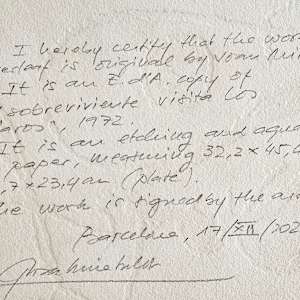 I hereby certify that the wor
erleaf is original by Joan Mir
It is an E.d'A. copy of
sobreviviente visita los
aros", 1972.
It is an etching and aqua
paper, measuring 32,2 x 45,4
,7 x 23,4 cm (plate).
he work is signed by the ar
Barcelona, 17/XII/202